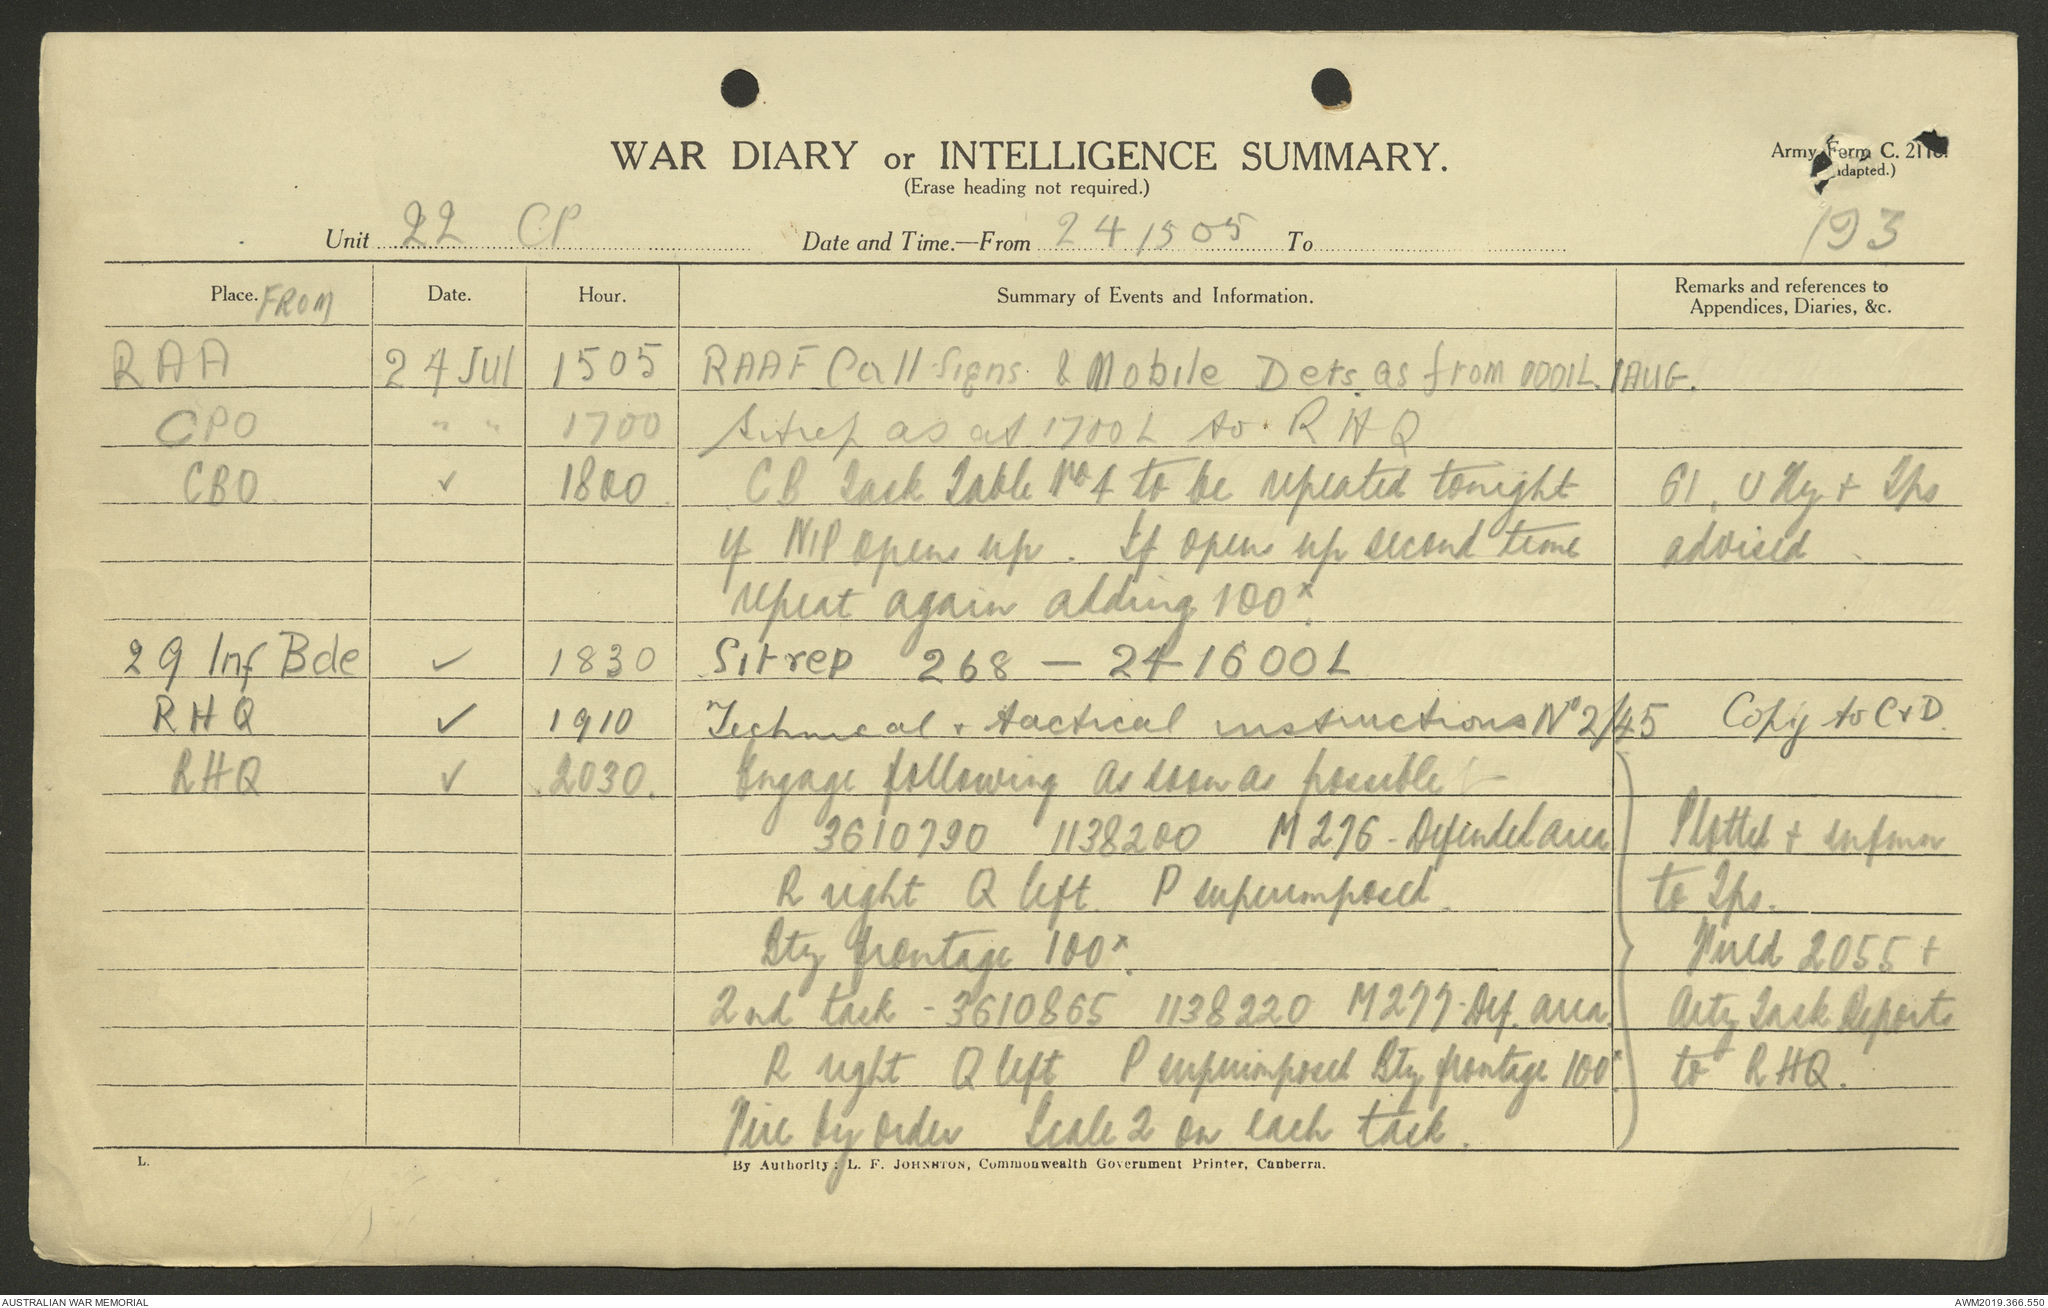 WAR DIARY or INTELLIGENCE SUMMARY.
(Erase heading not required.)
Army Form C. 2118.
adapted.)
193
Unit 22 CP Date and Time.—From 241505 To
Place. FROM Date. Hour. Summary of Events and Information. Remarks and references to Appendices, Diaries, &c.
RAA 24 Jul 1505 RAAF Call Signs & Mobile Dets as from 0001L. 1 AUG.
CPO " " 1700 Sitrep as at 1700L to RHQ
CBO ✓ 1800 CB Task Table No 4 to be repeated tonight 61, U Hy + Tps
if NIP opens up. If opens up second time advised
repeat again adding 100x.
29 Inf Bde ✓ 1830 Sitrep 268 — 24 1600L
RHQ ✓ 1910 Technical + tactical instructions No 2/45 Copy to C+D
RHQ ✓ 2030. Engage following as soon as possible
3610790 1138200 M276 - Defended area Plotted +
R right Q left. P superimposed. to Tps.
Bty frontage 100x. Fired 2055 +
2nd task - 3610865 1138220 M277 - Def. area. Arty Task Reports
R right Q left P superimposed Bty frontage 100x. to RHQ.
Fire by order Scale 2 on each task.
L.
By Authority: L. F. JOHNSTON, Commonwealth Government Printer, Canberra.
AUSTRALIAN WAR MEMORIAL AWM2019.366.550